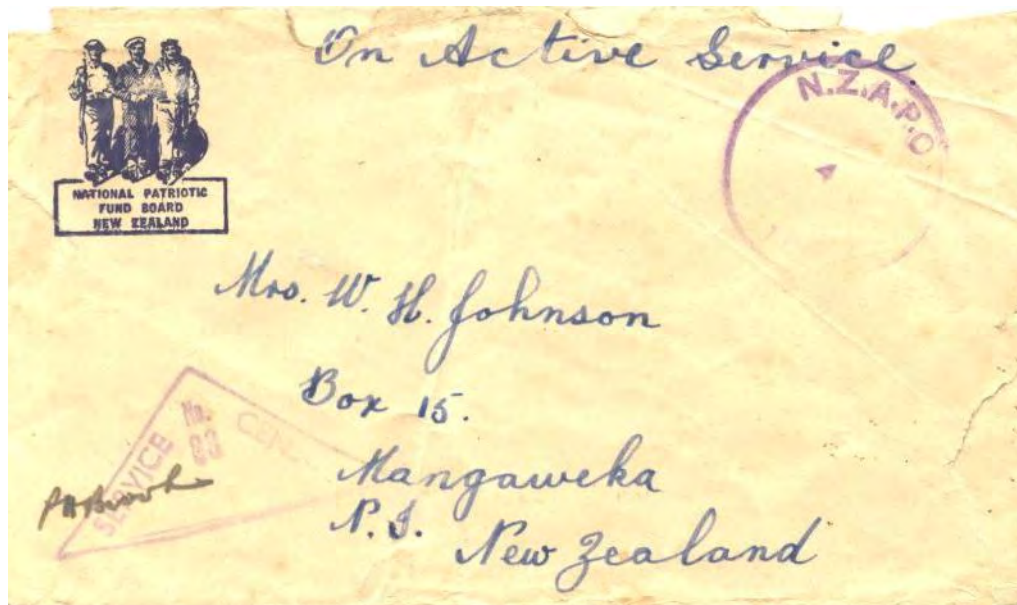 On Active Service
N.Z.A.P.O
4
NATIONAL PATRIOTIC
FUND BOARD
NEW ZEALAND
Mrs. W. H. Johnson
Box 15.
Mangaweka
N.I.
New Zealand
SERVICE
No.